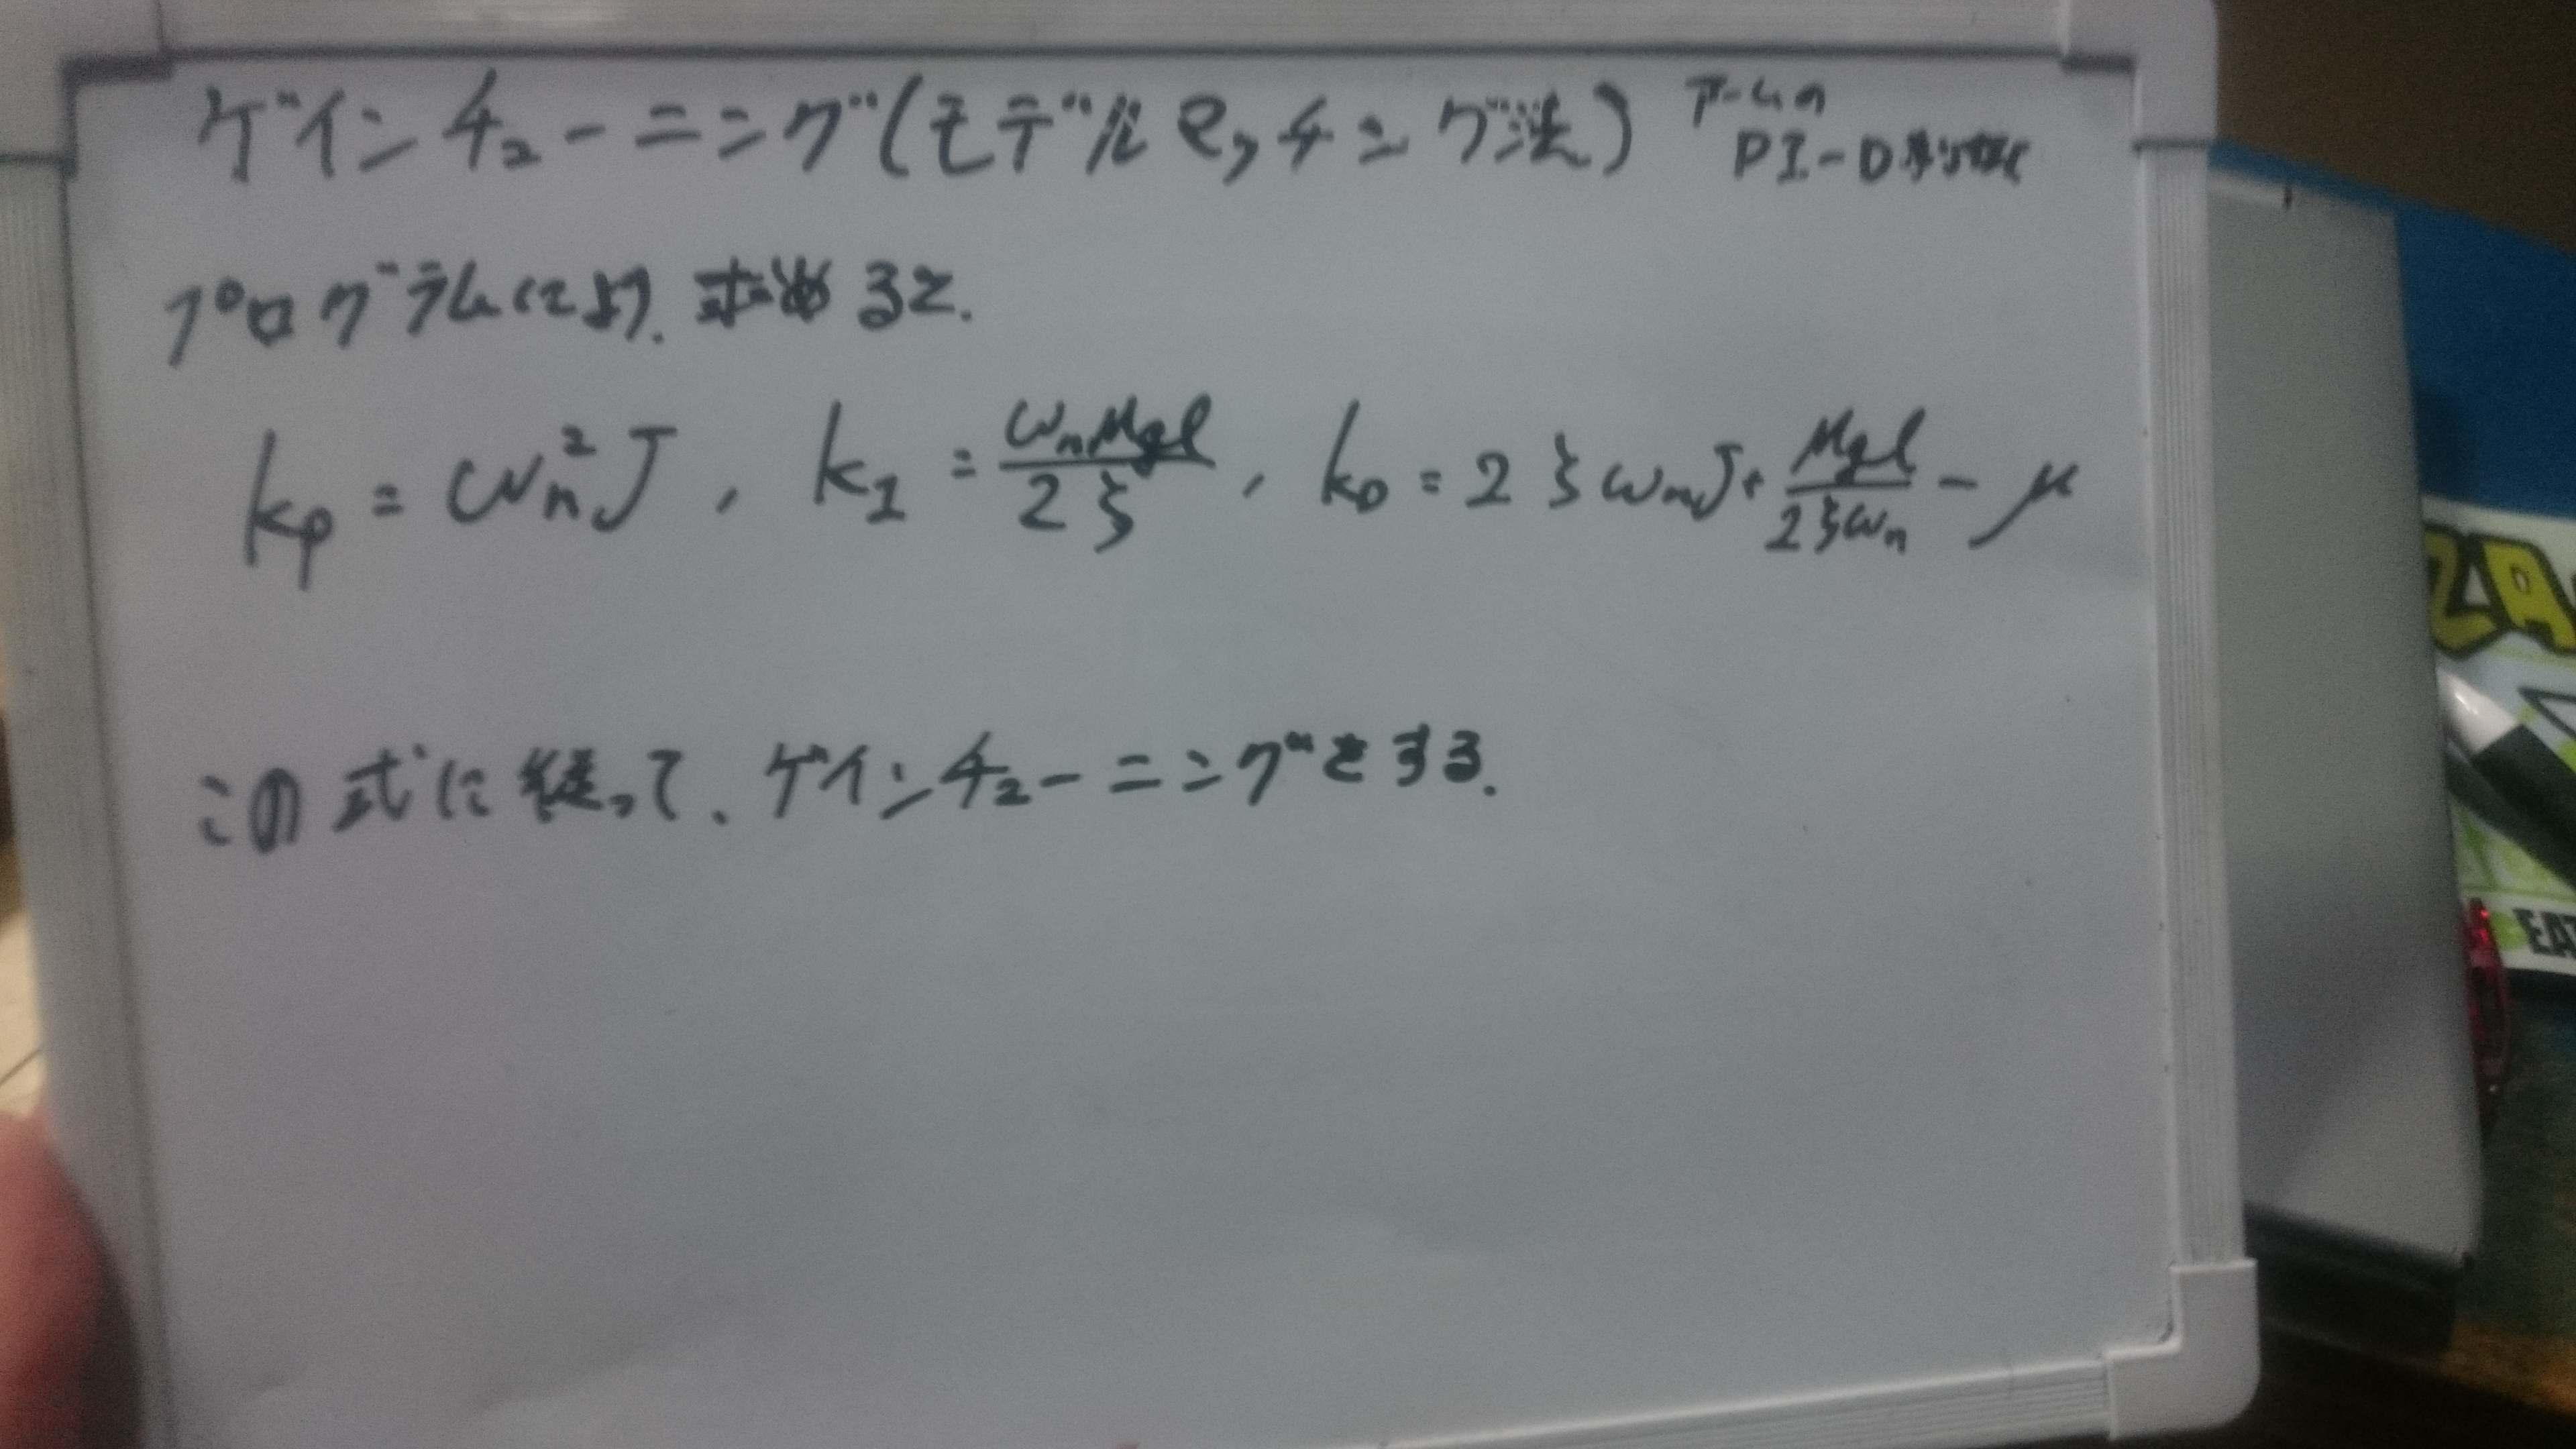 ゲインチューニング(モデルマッチング法) アームの
PI-D制御
プログラムにより、求めると.
kp = ωn²J , kI = ωnMgl/2ζ , kD = 2ζωnJ + Mgl/2ζωn - μ
この式に従って、ゲインチューニングをする.
ZA
EAT